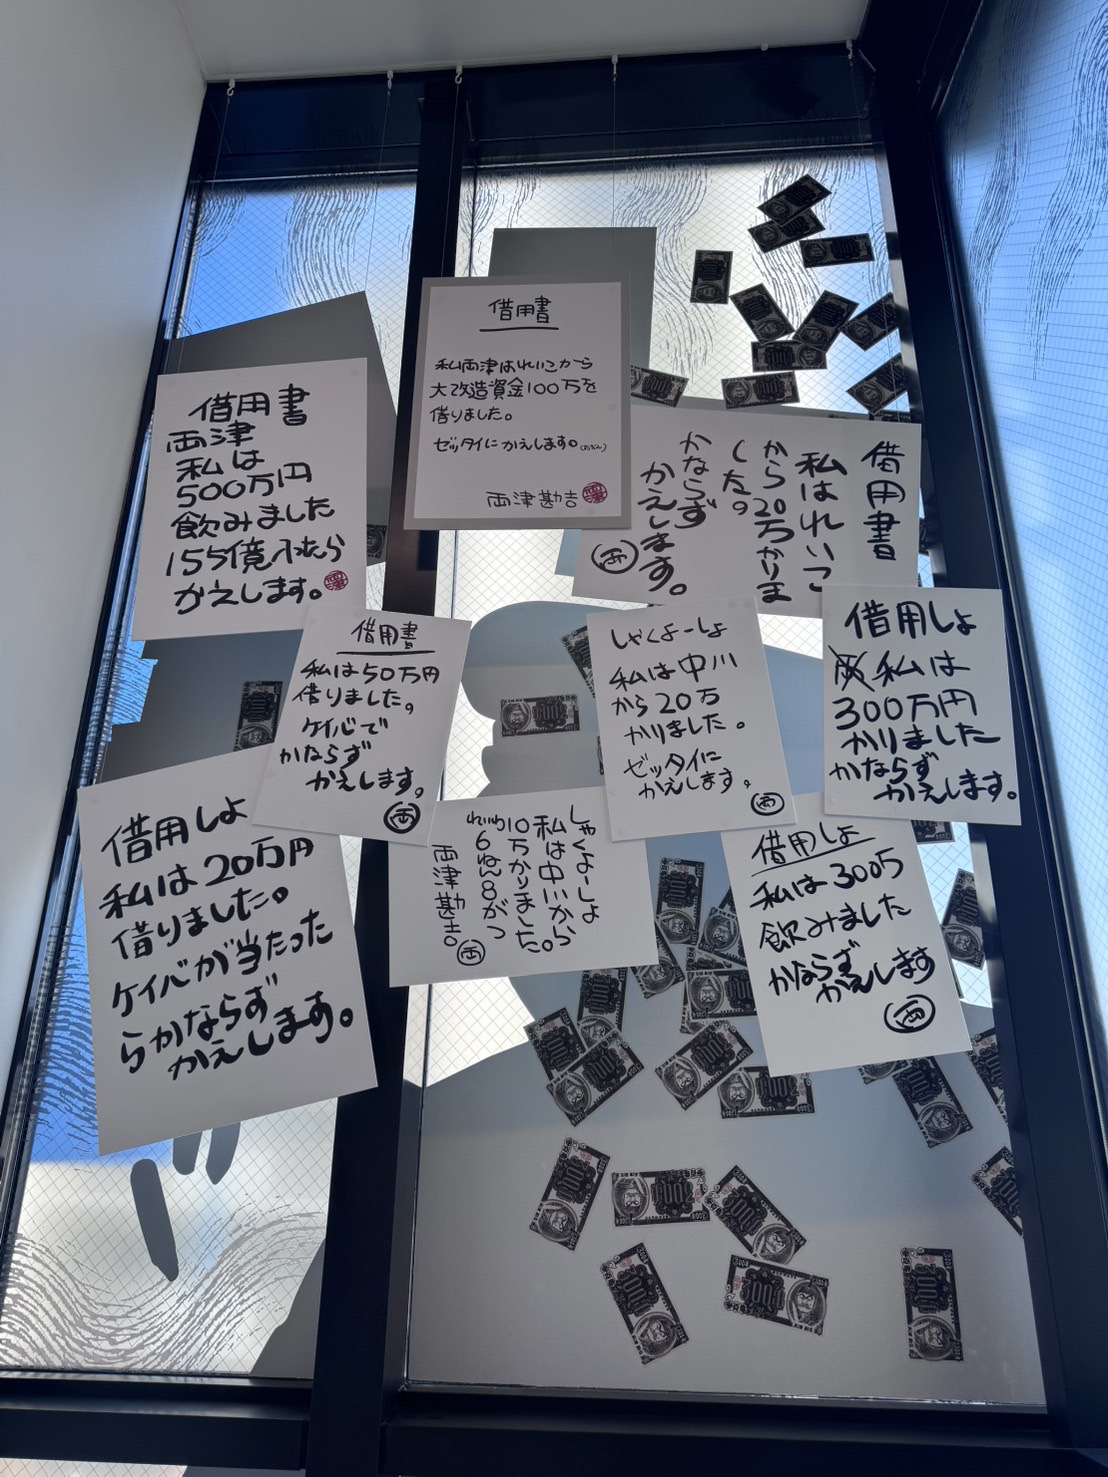 借用書
私両津はれいこから
大改造資金100万を
借りました。
ゼッタイにかえします。(たぶん)
両津勘吉
両津
借用書
両津
私は
500万円
飲みました
155億入ったら
かえします。
両津
借用書
私はれいこ
から20万かりま
した。
かならず
かえします。
両
借用書
私は50万円
借りました。
ケイバで
かならず
かえします。
両
しゃくよーしょ
私は中川
から20万
かりました。
ゼッタイに
かえします。
両
借用しょ
私は
300万円
かりました
かならず
かえします。
借用しょ
私は20万円
借りました。
ケイバが当たった
らかならず
かえします。
しゃくよーしょ
私は中川から
10万かりました。
れいわ
6ねん8がつ
両津勘吉
両
借用しょ
私は300万
飲みました
かならず
かえします
両